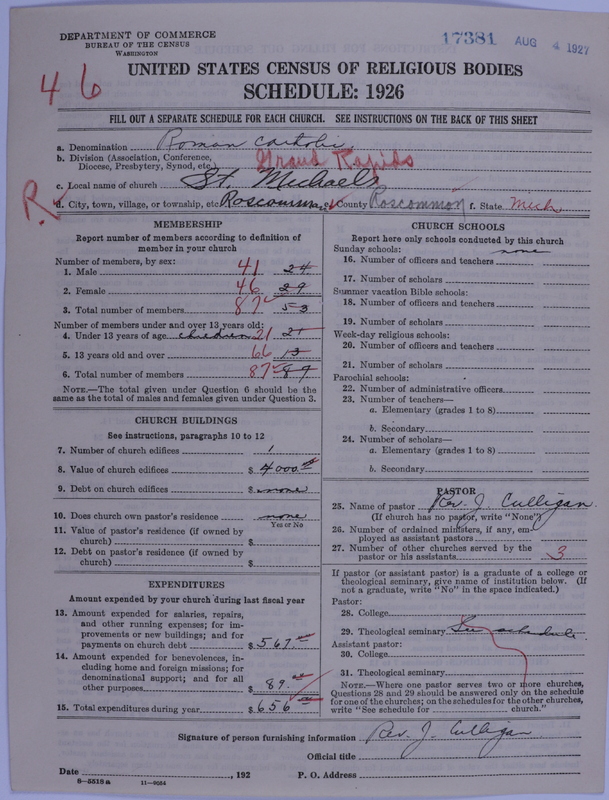 DEPARTMENT OF COMMERCE
BUREAU OF THE CENSUS
WASHINGTON
17381 AUG 4 1927
46
UNITED STATES CENSUS OF RELIGIOUS BODIES
SCHEDULE: 1926
FILL OUT A SEPARATE SCHEDULE FOR EACH CHURCH. SEE INSTRUCTIONS ON THE BACK OF THIS SHEET
a. Denomination Roman Catholic
b. Division (Association, Conference,
Diocese, Presbytery, Synod, etc.) Grand Rapids
c. Local name of church St. Michaels
R.
d. City, town, village, or township, etc. Roscommon e. County Roscommon f. State Mich
MEMBERSHIP
Report number of members according to definition of
member in your church
Number of members, by sex:
1. Male 41 24
2. Female 46 29
3. Total number of members 87 53
Number of members under and over 13 years old:
4. Under 13 years of age children 21 21
5. 13 years old and over 66 13
6. Total number of members 87 87
NOTE.—The total given under Question 6 should be the
same as the total of males and females given under Question 3.
CHURCH BUILDINGS
See instructions, paragraphs 10 to 12
7. Number of church edifices 1
8. Value of church edifices $ 4000
9. Debt on church edifices $ none
10. Does church own pastor's residence none
Yes or No
11. Value of pastor's residence (if owned by
church) $
12. Debt on pastor's residence (if owned by
church) $
EXPENDITURES
Amount expended by your church during last fiscal year
13. Amount expended for salaries, repairs,
and other running expenses; for im-
provements or new buildings; and for
payments on church debt $ 567
14. Amount expended for benevolences, in-
cluding home and foreign missions; for
denominational support; and for all
other purposes $ 89.
15. Total expenditures during year $ 656
CHURCH SCHOOLS
Report here only schools conducted by this church
Sunday schools: none
16. Number of officers and teachers
17. Number of scholars
Summer vacation Bible schools:
18. Number of officers and teachers
19. Number of scholars
Week-day religious schools:
20. Number of officers and teachers
21. Number of scholars
Parochial schools:
22. Number of administrative officers
23. Number of teachers—
a. Elementary (grades 1 to 8)
b. Secondary
24. Number of scholars—
a. Elementary (grades 1 to 8)
b. Secondary
PASTOR
25. Name of pastor Rev. J. Culligan.
(If church has no pastor, write "None")
26. Number of ordained ministers, if any, em-
ployed as assistant pastors
27. Number of other churches served by the
pastor or his assistants 3
If pastor (or assistant pastor) is a graduate of a college or
theological seminary, give name of institution below. (If
not a graduate, write "No" in the space indicated.)
Pastor:
28. College
29. Theological seminary See schedule
Assistant pastor:
30. College
31. Theological seminary
NOTE.—Where one pastor serves two or more churches,
Questions 28 and 29 should be answered only on the schedule
for one of the churches; on the schedules for the other churches,
write "See schedule for church."
Signature of person furnishing information Rev. J. Culligan
Official title
Date , 192 P. O. Address
8—5518a 11—9064